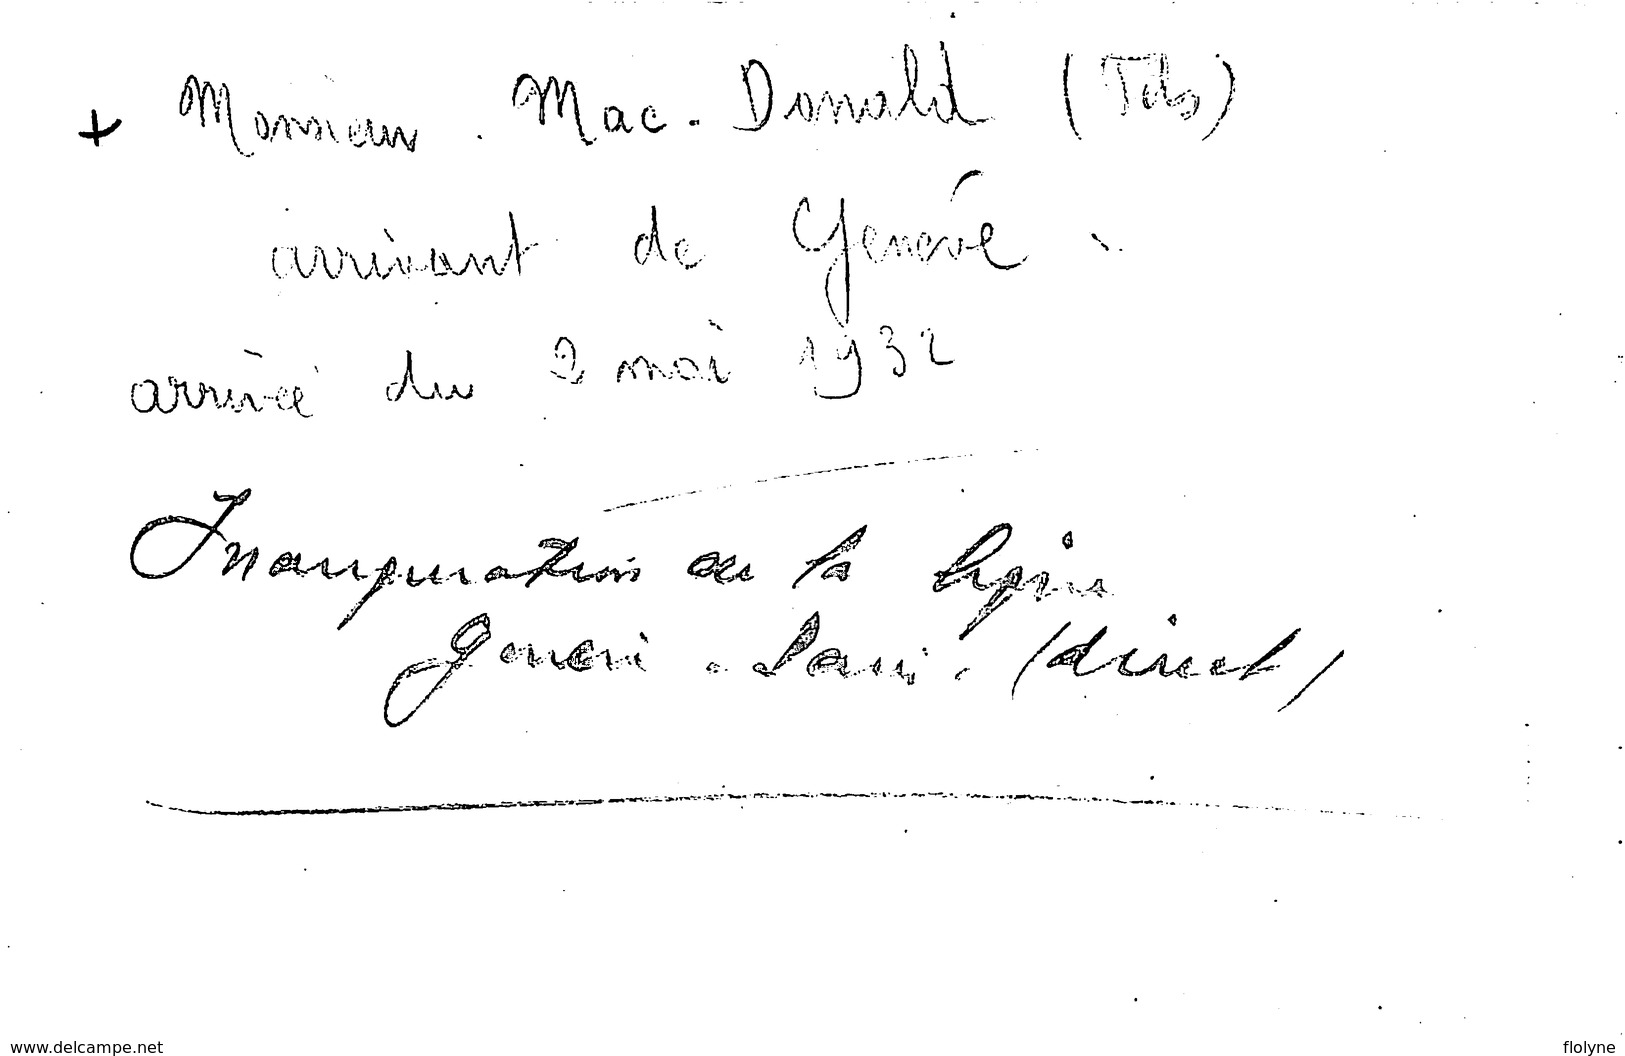 + Monsieur . Mac-Donald (Fils)
arrivant de Genève .
arrivée du 2 mai 1932
Inauguration de la ligne
Genève - Paris . (direct)
www.delcampe.net
flolyne